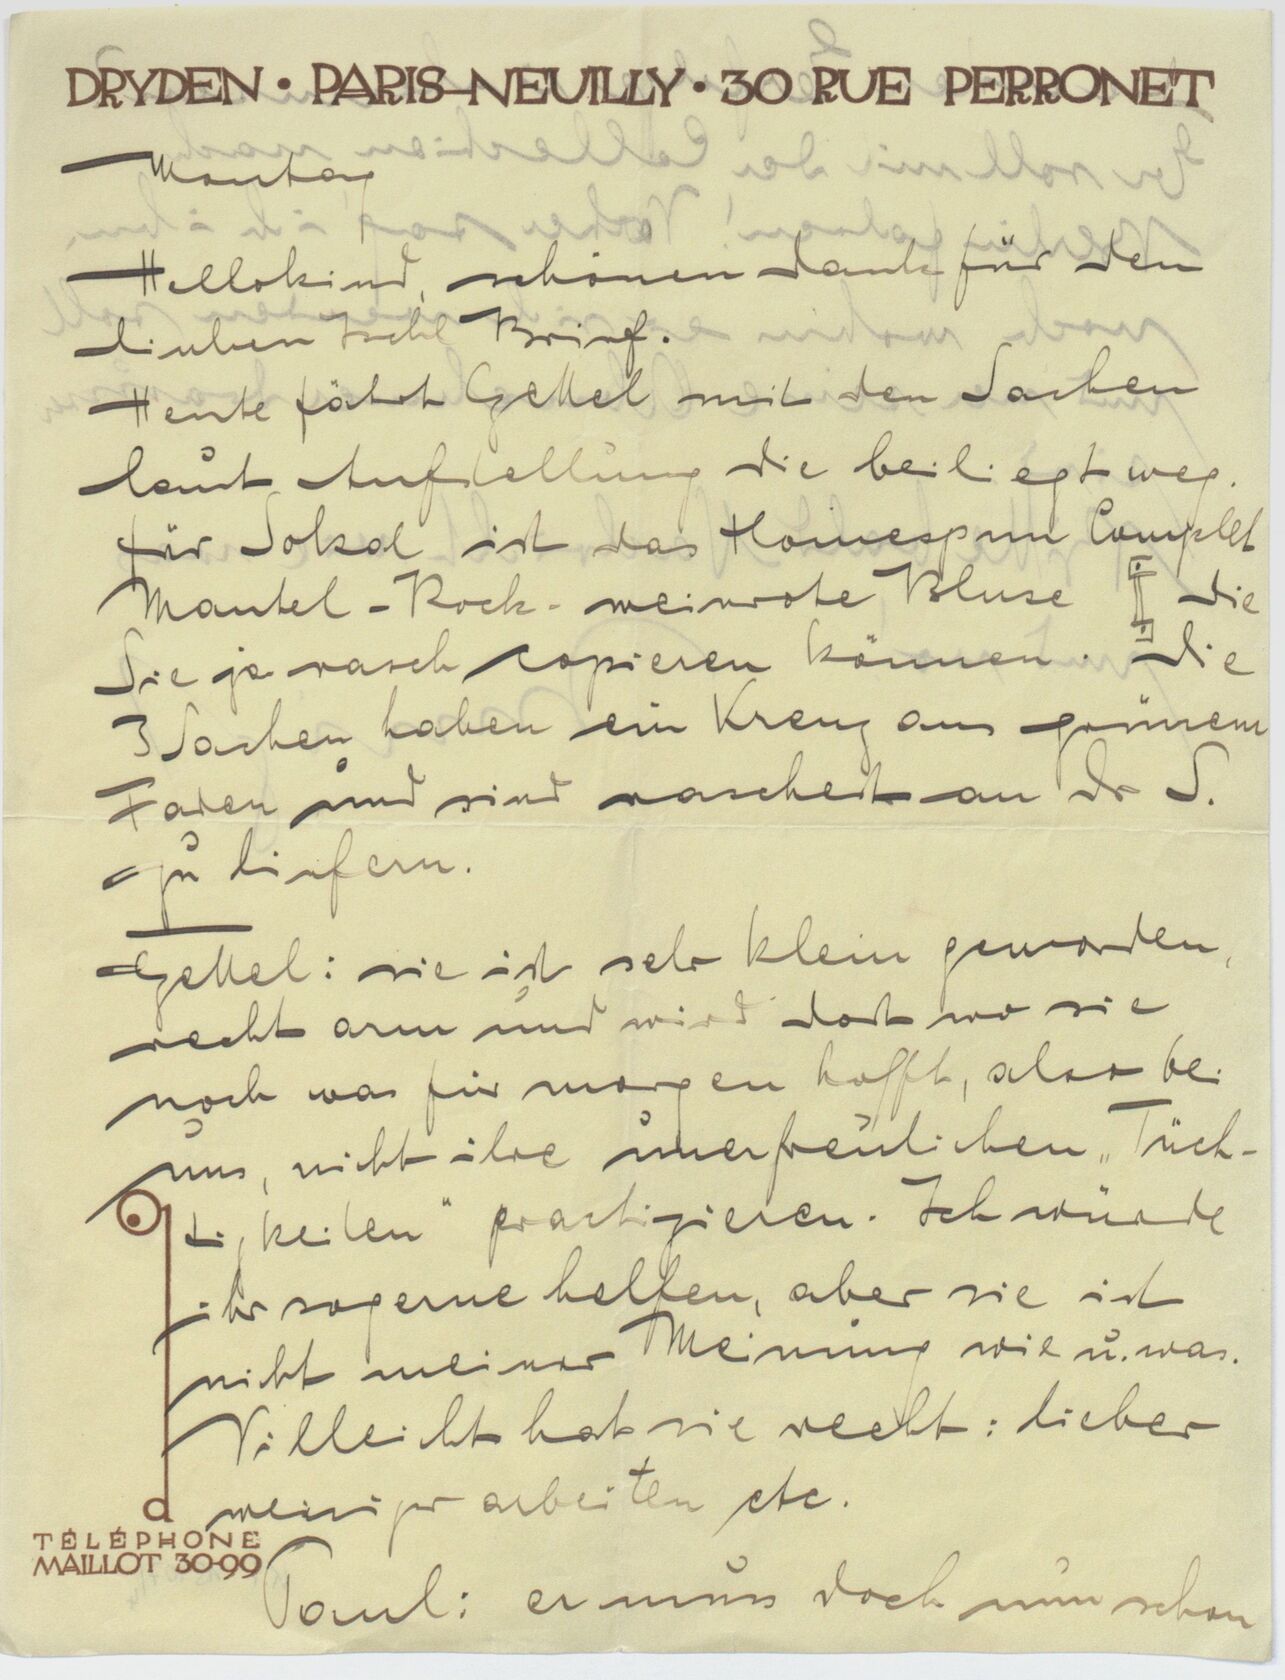 DRYDEN • PARIS-NEUILLY • 30 RUE PERRONET
Montag
Hellokind, schönen Dank für den
lieben Ischl Brief.
Heute fährt Gettel mit den Sachen
laut Aufstellung die beiliegt weg.
für Sokal ist das Homespun Complet
Mantel - Rock - weinrote Bluse die
Sie ja rasch copieren können. Die
3 Sachen haben ein Kreuz aus grünem
Faden und sind raschest an Dr S.
zu liefern.
Gettel: sie ist sehr klein geworden,
recht arm und wird dort wo sie
noch was für morgen hofft, also bei
uns, nicht ihre unerfreulichen „Tüch-
tigkeiten" practizieren. Ich würde
ihr sogerne helfen, aber sie ist
nicht meiner Meinung wie u. was.
Villeicht hat sie recht: lieber
weniger arbeiten etc.
d
TÉLÉPHONE
MAILLOT 30-99
Paul: er muss doch nun schon